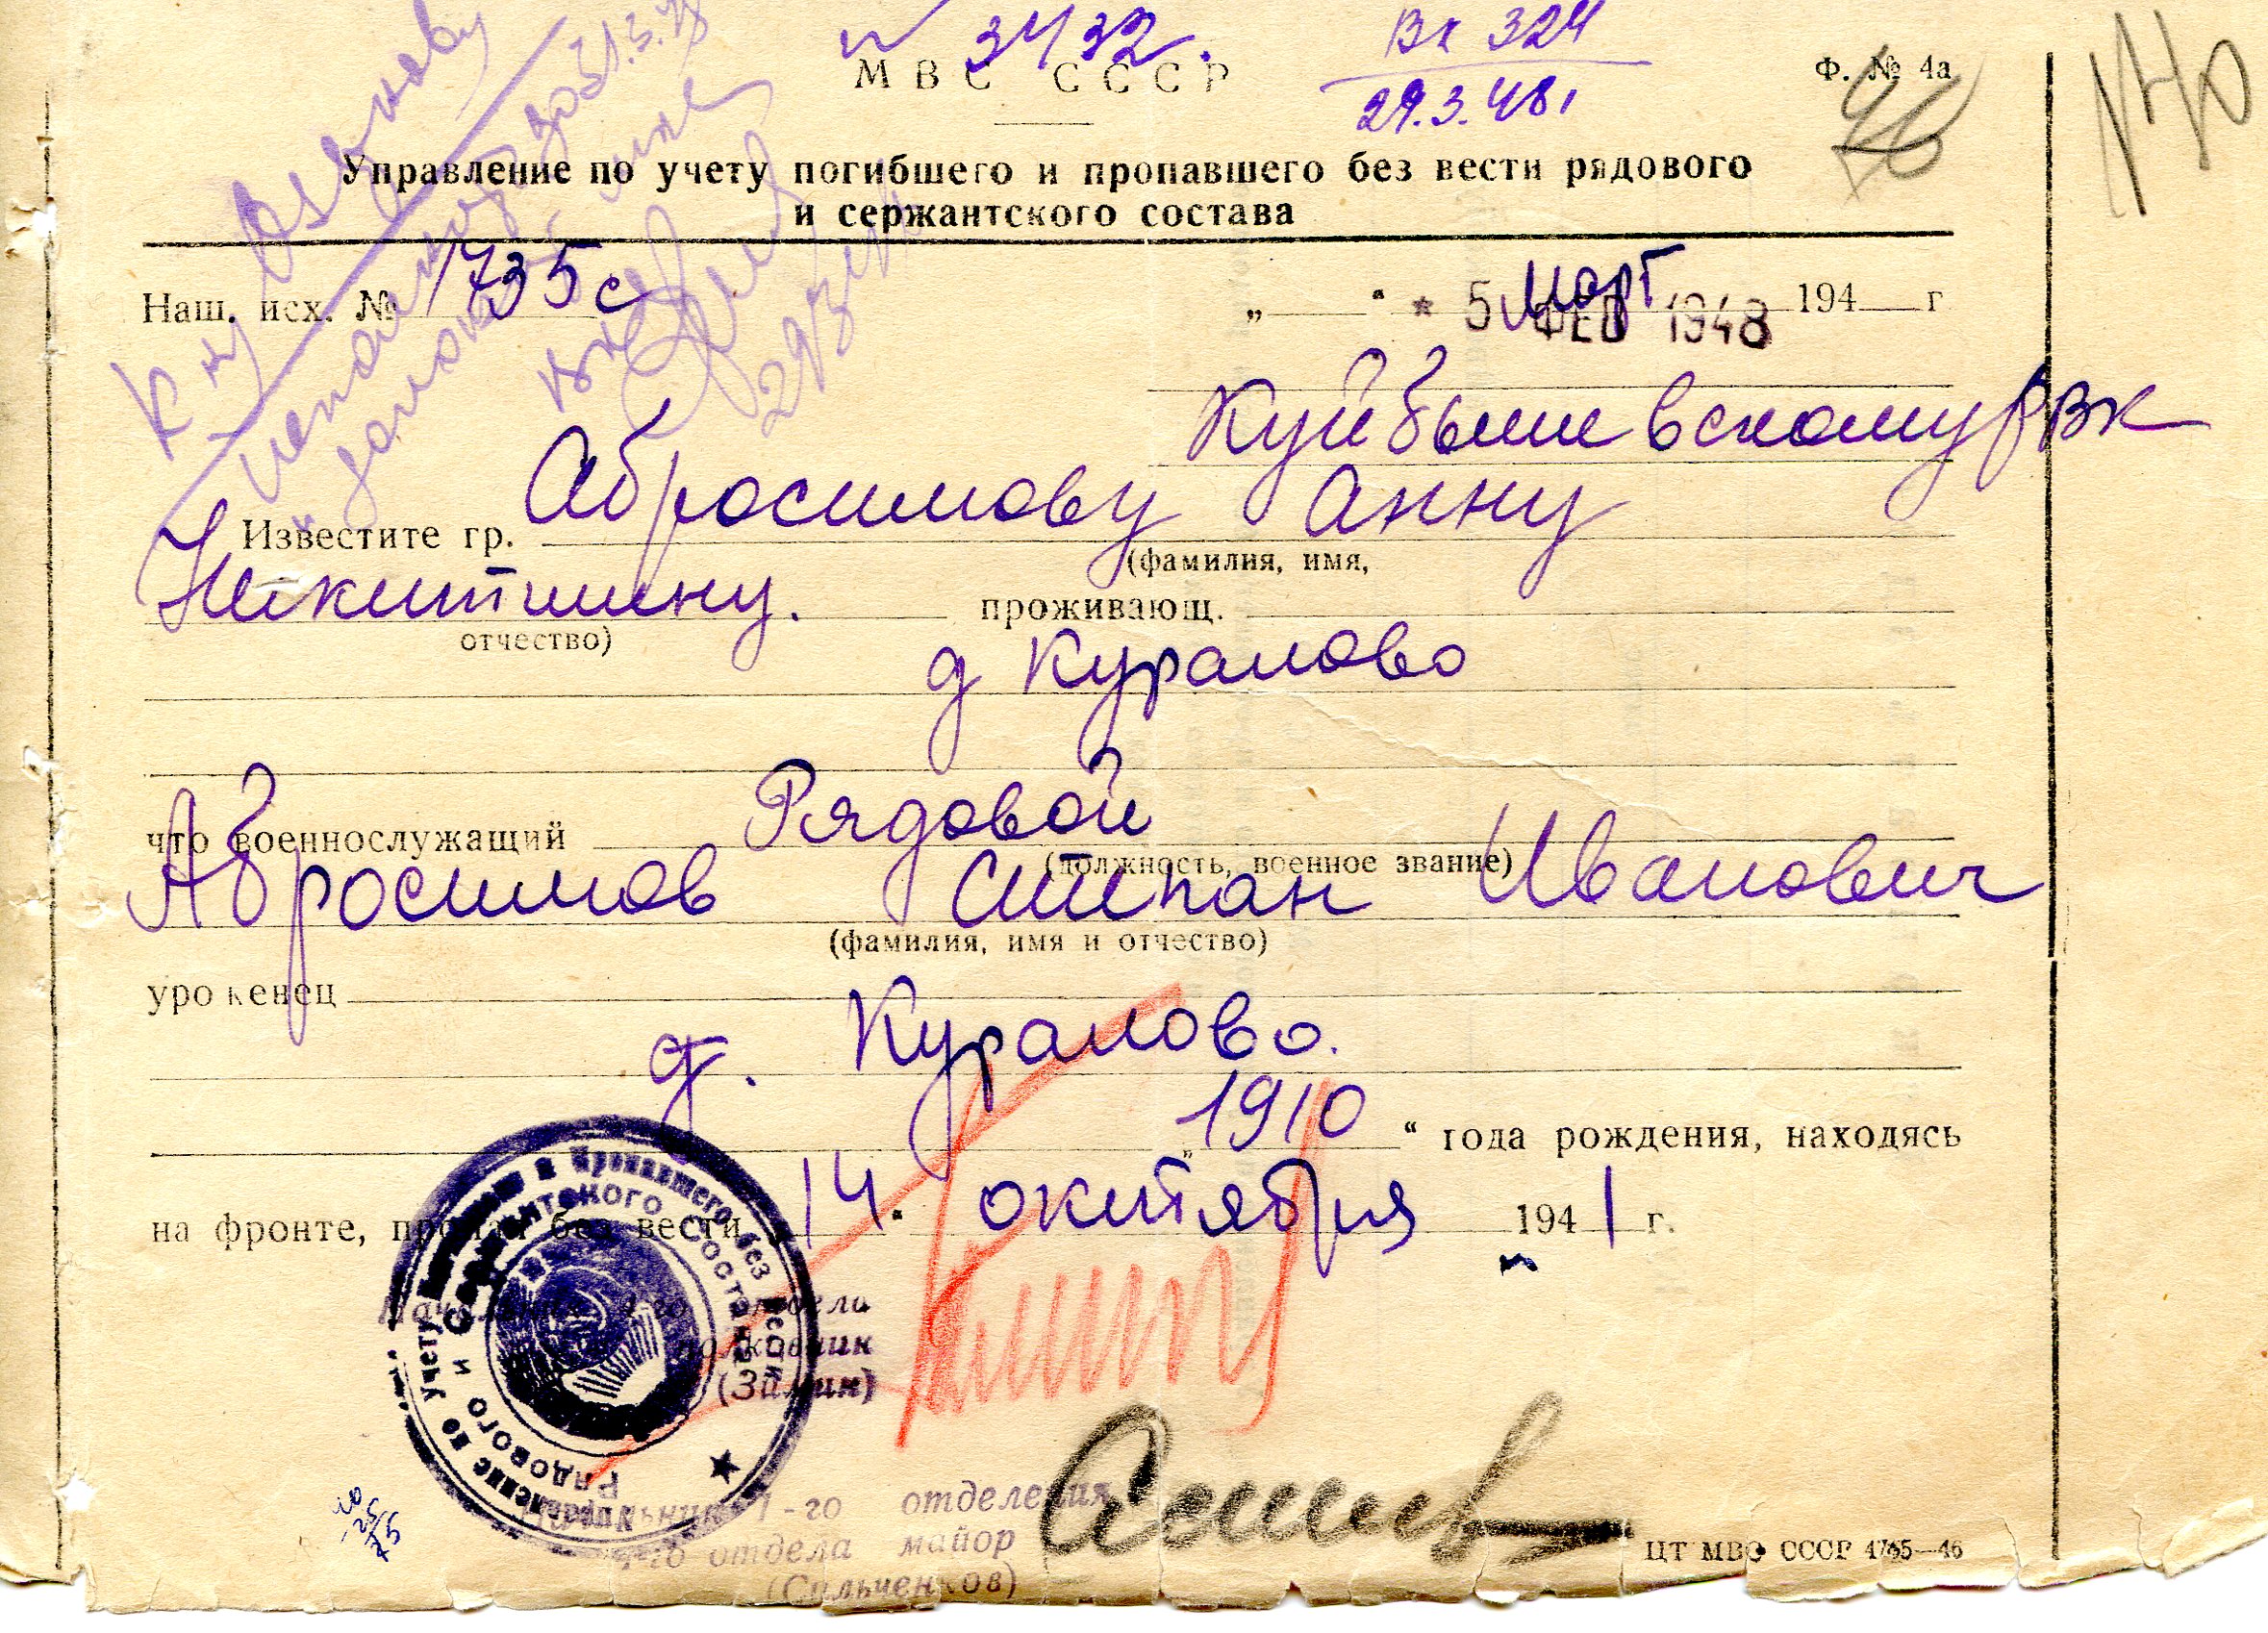 № 3432.
Вх 324
29.3.48г
МВС СССР
Ф. № 4а
Управление по учету погибшего и пропавшего без вести рядового
и сержантского состава
Наш. исх. № 1735с
„ “ * 5 Март ФЕВ 1948 194 г
Куйбышевскому РВК
Известите гр. Абросимову Анну
(фамилия, имя,
Никитишну. проживающ.
отчество)
д Куралово
что военнослужащий Рядовой
(должность, военное звание)
Абросимов Степан Иванович
(фамилия, имя и отчество)
уроженец
д. Куралово.
„1910“ года рождения, находясь
на фронте, пропал без вести „14“ октября 1941 г.
Начальник 4-го отдела
полковник
(Замин)
Управление по учету погибшего и пропавшего без вести
Рядового и Сержантского состава
Начальник 1-го отделения
4-го отдела майор
(Сильченков)
ЦТ МВС СССР 4765—46